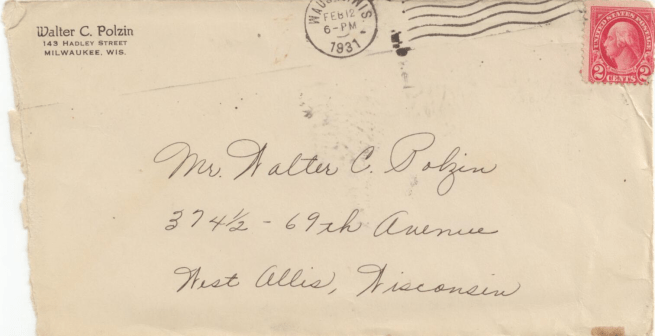 Walter C. Polzin
143 HADLEY STREET
MILWAUKEE, WIS.
WIS.
FEB 12
6-PM
1931
UNITED STATES POSTAGE
2 CENTS 2
Mr. Walter C. Polzin
374½ - 69th Avenue
West Allis, Wisconsin